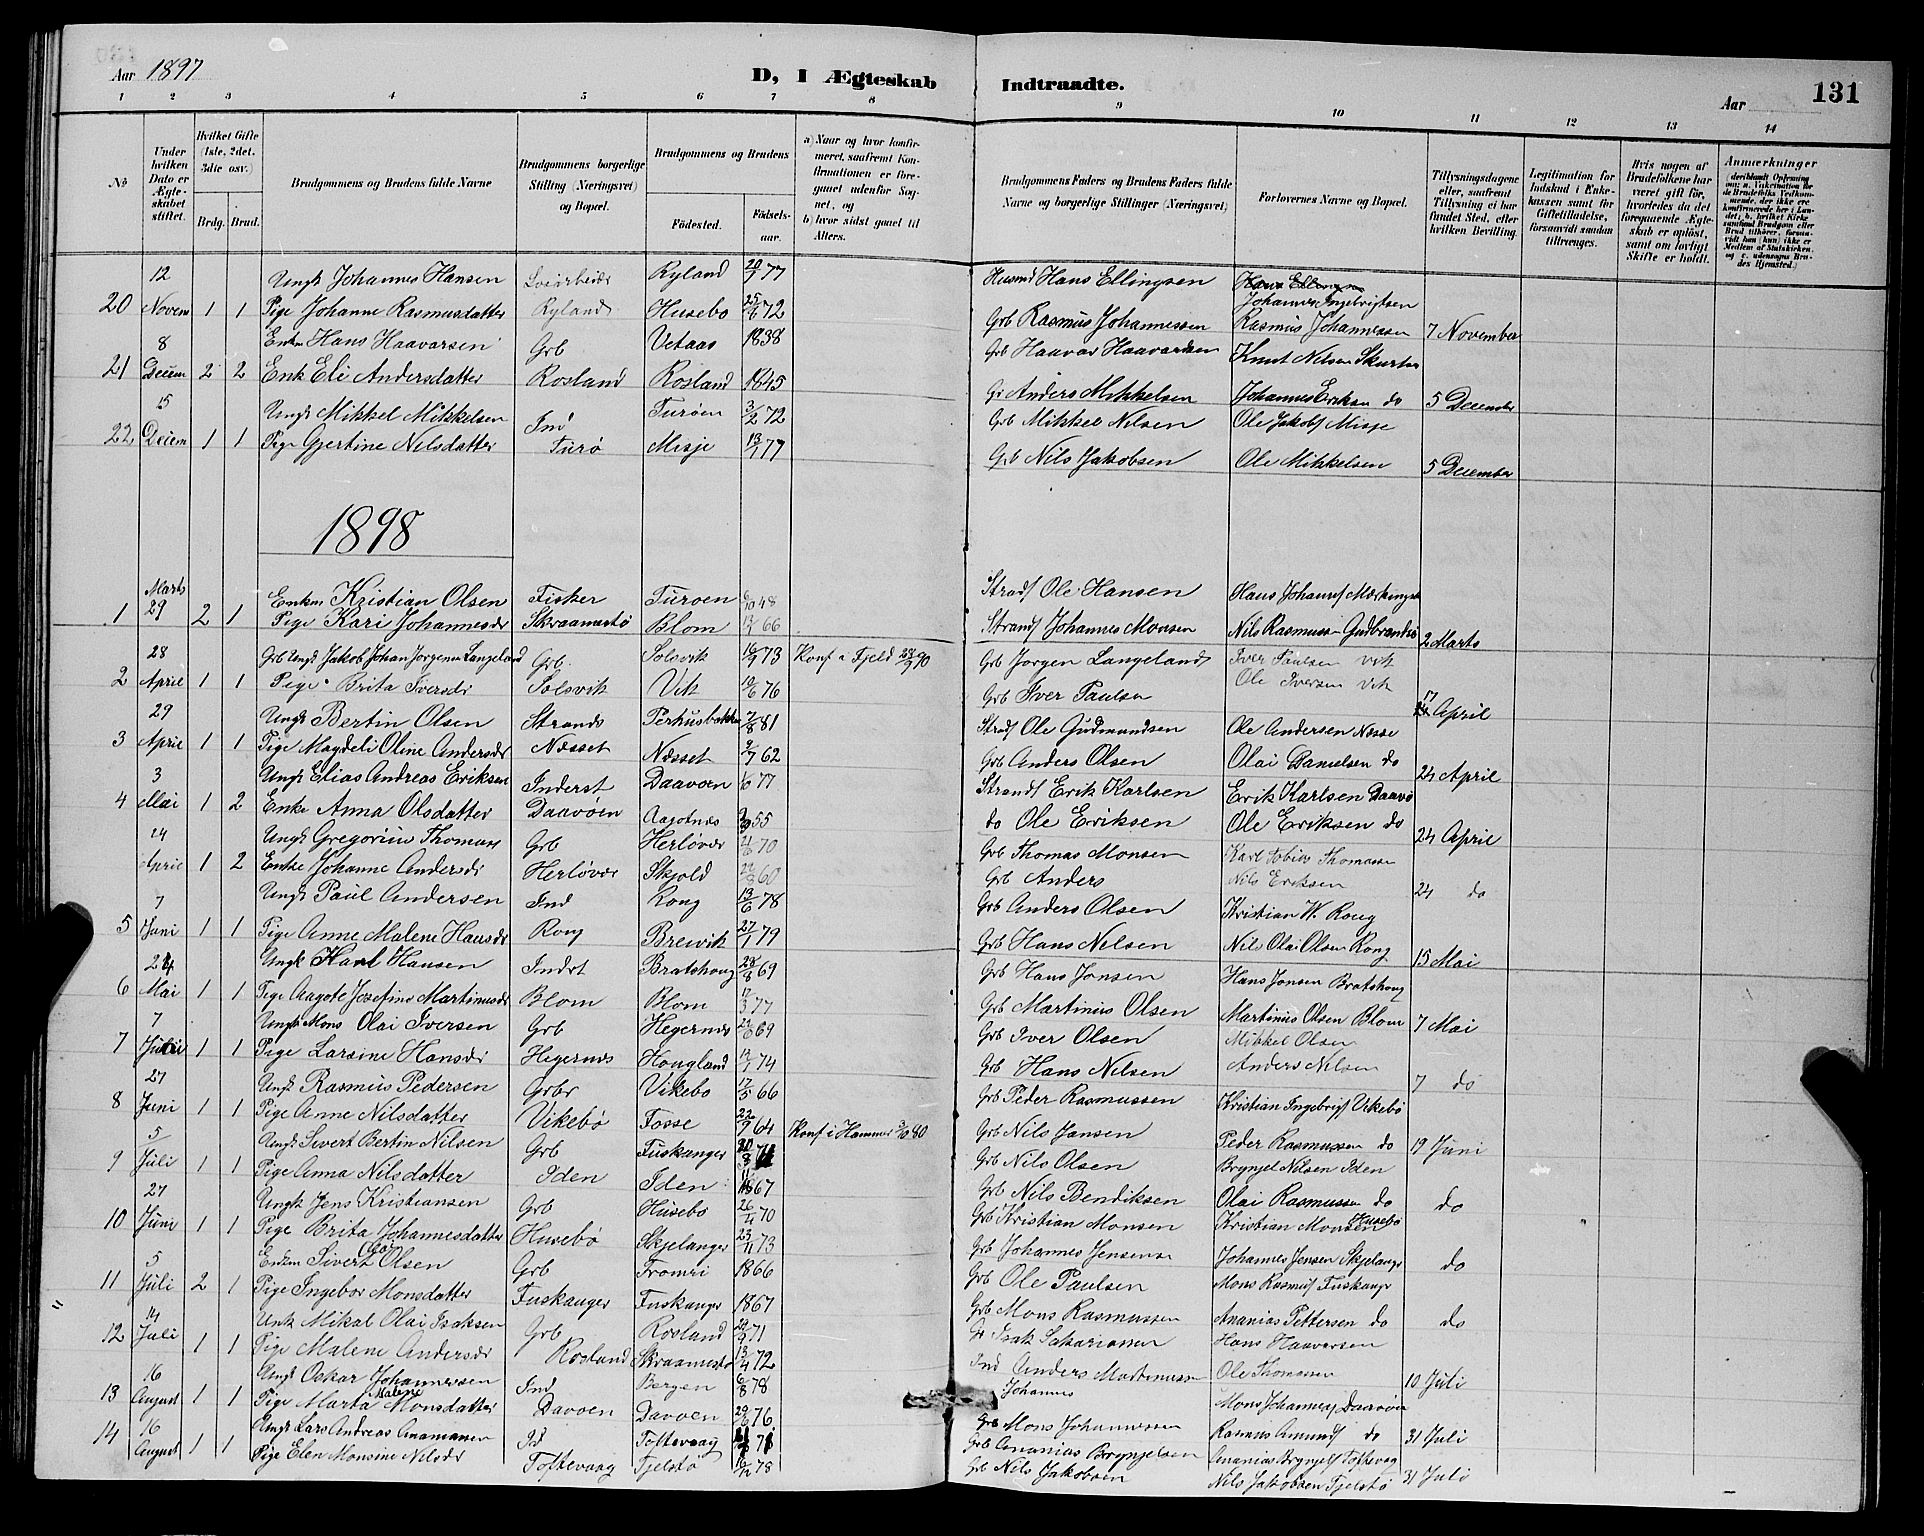 Aar 1897
D, I Ægteskab Indtraadte.
Aar
131
1 2 3 4 5 6 7 8 9 10 11 12 13 14
No
Under hvilken Dato er Ægteskabet stiftet.
Hvilket Gifte (1ste, 2det, 3die osv.)
Brdg. Brud.
Brudgommens og Brudens fulde Navne
Brudgommens borgerlige Stilling (Næringsvei) og Bopæl.
Brudgommens og Brudens
Födested. Födselsaar.
a) Naar og hvor konfirmeret, saafremt Konfirmationen er foregaaet udenfor Sognet, og
b) hvor sidst gaaet til Alters.
Brudgommens Faders og Brudens Faders fulde Navne og borgerlige Stillinger (Næringsvei)
Forlovernes Navne og Bopæl.
Tillysningsdagene eller, saafremt Tillysning ei har fundet Sted, efter hvilken Bevilling.
Legitimation for Indskud i Enkekassen samt for Giftetilladelse, forsaavidt saadan tiltrænges.
Hvis nogen af Brudefolkene har været gift før, hvorledes da det foregaaende Ægteskab er oplöst, samt om lovligt Skifte er holdt.
Anmærkninger
12 Ungk Johannes Hansen Ryland 20/7 77 Husmd Hans Ellingsen Hans Ellingsen
20 Novem 1 1 Pige Johanne Rasmusdatter Ryland Husebo 25/6 72 Grb Rasmus Johannessen Johannes Ingebrigtsen Rasmus Johannessen 7 November
8 Enkm Hans Haavarsen Grb Vetaas 1838 Grb Haavar Haavardsen Knut Nilsen
21 Decem 2 2 Enk Eli Andersdatter Rosland Rosland 1845 Gr Anders Mikkelsen Johannes Eriksen do 5 December
15 Ungk Mikkel Mikkelsen Ind Turöen 3/2 72 Grb Mikkel Nilsen Ole Jakobs Misje
22 Decem 1 1 Pige Gjertine Nilsdatter Turö Misje 13/7 77 Grb Nils Jakobsen Ole Mikkelsen 5 December
1898
Marts 29 Enkm Kristian Olsen Fisker Turoen 6/10 48 Strads Ole Hansen
1 2 1 Pige Kari Johannesdr Skraamestö Blom 13/7 66 Strands Johannes Monsen Nils Rasmussen 2 Marts
28 Grb Ungk Jakob Johan Jorgensen Langeland Grb Solsvik 16/9 73 Konf i Fjeld 28/9 90 Grb Jorgen Langeland Iver Paulsen Vik
2 April 1 1 Pige Brita Iversdr Solsvik Vik 10/6 76 Grb Iver Paulsen Ole Iversen Vik 17 April
29 Ungk Bertin Olsen Strands 7/8 81 Strads Ole Gudmundsen Ole Andersen Næsse
3 April 1 1 Pige Magdeli Oline Andersdr Næsset Næsset 2/7 62 Grb Anders Olsen Olai Danielsen do 24 April
3 Ungk Elias Andreas Eriksen Inderst Daavoen 1/6 77 Strands Erik Karlsen Erik Karlsen Daavö
4 Mai 1 2 Enke Anna Olsdatter Daavöen Aagotnæs 55 do Ole Eriksen Ole Eriksen do 24 April
24 Ungk Gregorius Thomass Grb Herlöver 70 Grb Thomas Monsen Karl Tobias Thomassen
April 1 2 Enke Johanne Andersdr Herlöver Skjold 60 Grb Anders Nils Eriksen 24 do
7 Ungk Paul Andersen Ind Rong 13/6 78 Grb Anders Olsen Kristian W. Rong
5 Juni 1 1 Pige Anne Malene Hansdr Rong Brewik 27/1 79 Grb Hans Nilsen Nils Olai Olsen Rong 15 Mai
24 Ungk Karl Hansen Indrt Bratshoug 28/8 69 Grb Hans Jonsen Hans Jonsen Bratshoug
6 Mai 1 1 Pige Aagote Josefine Martinusdr Blom Blom 17/3 77 Grb Martinius Olsen Martinius Olsen Blom 7 Mai
7 Ungk Mons Olai Iversen Grb Hegernes 69 Grb Iver Olsen Mikkel Olsen
7 Juli 1 1 Pige Larsine Hansdr Hegernes Hougland 12/7 74 Grb Hans Nilsen Anders Nilsen 7 do
27 Ungk Rasmus Pedersen Grbr Vikebo 17/5 66 Grb Peder Rasmussen Kristian Ingebrigs Vikebö
8 Juni 1 1 Pige Anne Nilsdatter Vikebö Fosse 22/9 64 Konf i Hammer 3/10 80 Grb Nils Jansen Peder Rasmussen do 19 Juni
5 Ungk Sivert Bertin Nilsen Grb Fuskanger Grb Nils Olsen Brynjel Nilsen Iden
9 Juli 1 1 Pige Anna Nilsdatter Iden Iden 67 Grb Nils Bendiksen Olai Rasmussen do do
27 Ungk Jens Kristiansen Grb Husebö 26/4 70 Grb Kristian Monsen Kristian Monsen Husebö
10 Juni 1 1 Pige Brita Johannesdatter Husebö Skjelanger 23/11 73 Grb Johannes Jensen Johannes Jensen Skjelanger do
5 Enkm Sivert Olai Olsen Grb Fromri 1866 Grb Ole Paulsen Mons Rasmus Fuskanger
11 Juli 2 1 Pige Ingebor Monsdatter Fuskanger Fuskanger 1867 Grb Mons Rasmussen Ananias Pettersen do do
14 Unk Mikal Olai Isaksen Grb Rosland 71 Gr Isak Sakariassen Hans Haavarsen
12 Juli 1 1 Pige Malene Andersdr Rosland Skraamestö 13/4 72 Ind Anders Ole Thomassen 10 Juli
16 Ungk Oskar Johannessen Ind Bergen 6/8 78 Johannes Mons Johannes Daavöen
13 August 1 1 Pige Marta Malene Monsdatter Davoen Davoen 76 Grb Mons Johannessen Rasmus Amunds do 31 Juli
16 Ungk Lars Andreas Ananiassen Id Toftevaag Grb Ananias Brynjelsen Ananias Brynjels Toftevag
14 August 1 1 Pige Elen Monsine Nilsdr Toftevaag Tjelstö Grb Nils Jakobsen Nils Jakobsen Tjelstö 31 Juli